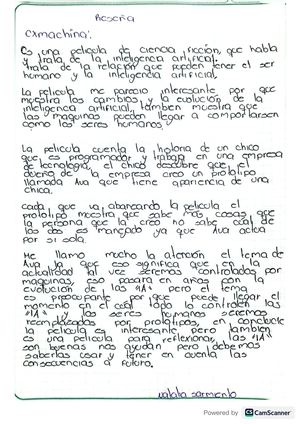 Reseña
exmachina:
Es una pelicula de ciencia ficción, que habla
y trata de la inteligencia artificial.
trata de la relación que pueden tener el ser
humano y la inteligencia artificial.
La pelicula me parecio interesante por que
muestra los cambios y la evolución de la
inteligencia artificial, tambien muestra que
las maquinas pueden llegar a comportarsen
como los seres humanos.
La pelicula cuenta la historia de un chico
que es programador y trabaja en una empresa
de tecnologia, el chico descubre que el
dueño de la empresa creo un prototipo
llamada Ava que tiene apariencia de una
chica.
Cada que va abanzando la pelicula el
prototipo mestra que sabe más cosas que
la persona que la creo no sabe cual de
los dos es manejado ya que Ava actea
por si sola.
Me llamo mucho la atención el tema de
Ava ya que eso significa que en la
actualidad tal vez seremos controlados por
maquinas, eso pasara en años con la
evolución de las "IA" pero el tema
es preocupante por que puede llegar el
momento en el cual todo lo controlen las
"IA" y los seres humanos seremos
reemplazados por prototipos, en concluciete
la pelicula es interesante pero tambien
es una pelicula para reflexionar, las "IA"
son buenas nos ayudan pero debemos
saberlas usar y tener en cuenta las
consecuencias a futuro.
natalia sarmiento
Powered by CS CamScanner